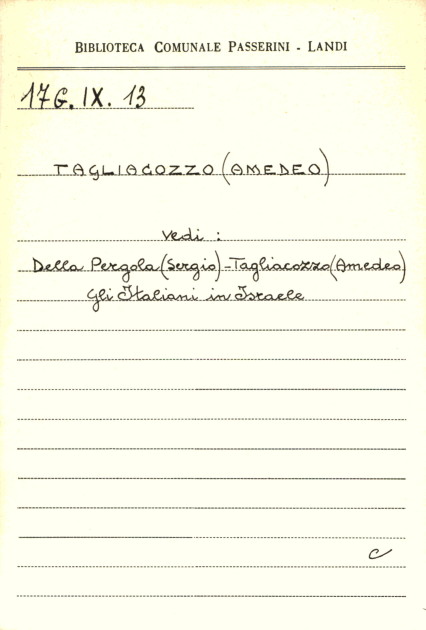 BIBLIOTECA COMUNALE PASSERINI - LANDI
17G. IX. 13
TAGLIACOZZO (AMEDEO)
Vedi :
Della Pergola (Sergio) - Tagliacozzo (Amedeo)
Gli Italiani in Israele
C